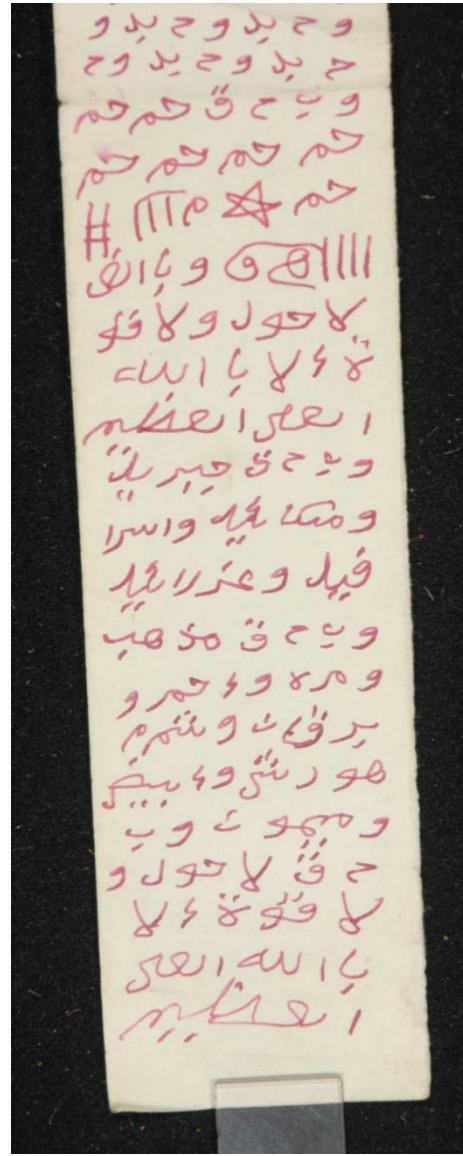 و ح يد و ح يد و
ح يد و ح يد و ح
و ب ح ق حم حم
حم حم حم حم
حم
و با الف
لا حول ولا قو
ة ء لا با الله
ا لعلى ا لعظيم
و ب ح ق جبر يل
و مىكا ئيل واسرا
فيل و عزرا ئيل
و ب ح ق مذ هب
و مر ة و ء حمر و
بر قا ن و شم
هو ر ش و ء بيض
و ميمو ن و ب
ح ق لا حول و
لا قو ة ء لا
با الله العلى
ا لعظيم